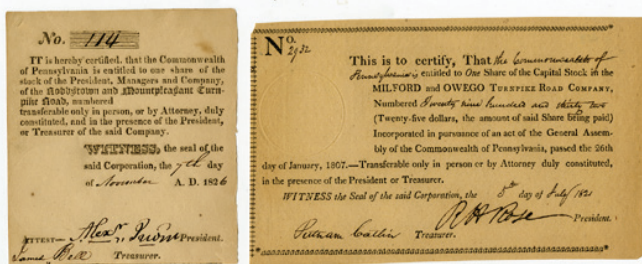 No. 114
IT is hereby certified, that the Commonwealth
of Pennsylvania is entitled to one share of the
stock of the President, Managers and Company,
of the Robbstown and Mountpleasant Turn-
pike Road, numbered
transferable only in person, or by Attorney, duly
constituted, and in the presence of the President,
or Treasurer of the said Company.
WITNESS, the seal of the
said Corporation, the 7th day
of November A. D. 1826
ATTEST— President.
James Bell Treasurer.
No. 2932
This is to certify, That the Commonwealth of
Pennsylvania is entitled to One Share of the Capital Stock in the
MILFORD and OWEGO TURNPIKE ROAD COMPANY,
Numbered Twenty nine hundred and thirty two
(Twenty-five dollars, the amount of said Share being paid)
Incorporated in pursuance of an act of the General Assem-
bly of the Commonwealth of Pennsylvania, passed the 26th
day of January, 1807.—Transferable only in person or by Attorney duly constituted,
in the presence of the President or Treasurer.
WITNESS the Seal of the said Corporation, the day of July 1821
R H Rose President.
Putnam Catlin Treasurer.